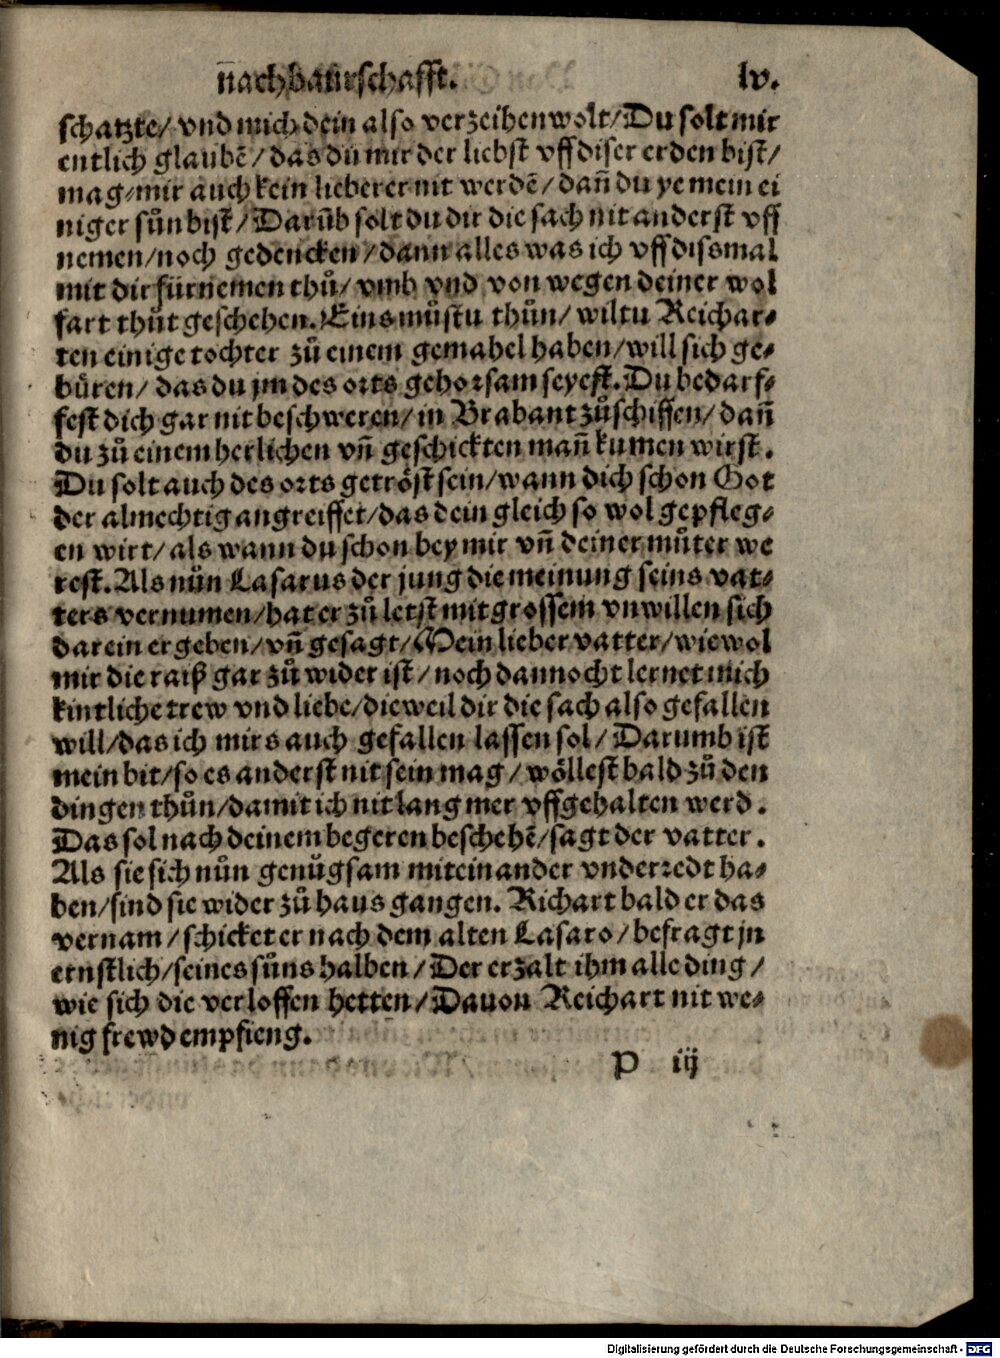 nachbaurschafft. lv.
schatzte/ vnd mich dein also verzeihen wolt/ Du solt mir
entlich glaubē/ das du mir der liebst vff diser erden bist/
mag mir auch kein lieberer nit werdē/ dañ du ye mein ei
niger sůn bist/ Darůb solt du dir die sach nit anderst vff
nemen/ noch gedencken/ dann alles was ich vff dissmal
mit dir fürnemen thů/ vmb vnd von wegen deiner wol
fart thůt geschehen. Eins můstu thůn/ wiltu Reichar⸗
ten einige tochter zů einem gemahel haben/ will sich ge⸗
büren/ das du jm des orts gehorsam seyest. Du bedarf⸗
fest dich gar nit beschweren/ in Brabant zůschiffen/ dañ
du zů einem herlichen vñ geschickten mañ kumen wirst.
Du solt auch des orts getröst sein/ wann dich schon Got
der almechtig angreiffet/ das dein gleich so wol gepfleg⸗
en wirt/ als wann du schon bey mir vñ deiner můter we
rest. Als nůn Lasarus der jung die meinung seins vat⸗
ters vernumen/ hat er zů letst mit grossem vnwillen sich
darein ergeben/ vñ gesagt/ Mein lieber vatter/ wiewol
mir die raiß gar zů wider ist/ noch dannocht lernet mich
kintliche trew vnd liebe/ dieweil dir die sach also gefallen
will/ das ich mirs auch gefallen lassen sol/ Darumb ist
mein bit/ so es anderst nit sein mag/ wöllest bald zů den
dingen thůn/ damit ich nit lang mer vffgehalten werd.
Das sol nach deinem begeren beschehē/ sagt der vatter.
Als sie sich nůn genůgsam miteinander vnderredt ha⸗
ben/ sind sie wider zů haus gangen. Richart bald er das
vernam/ schicket er nach dem alten Lasaro/ befragt jn
ernstlich/ seines sůns halben/ Der erzalt ihm alle ding/
wie sich die verloffen hetten/ Dauon Reichart nit we⸗
nig frewd empfieng.
P iij
Digitalisierung gefördert durch die Deutsche Forschungsgemeinschaft - DFG